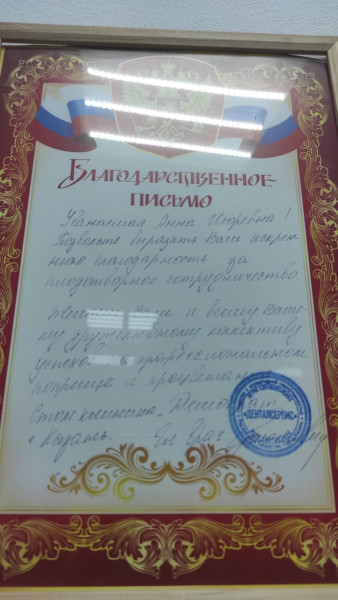 Благодарственное
письмо
Уважаемая Анна Игоревна!
Позвольте выразить Вам искрен-
нюю благодарность за
плодотворное сотрудничество
Желаем Вам и всему Ваше-
му дружелюбному коллективу
успехов в профессиональном
поприще и процветания
Стом клиника
г. Казань. Гл. врач
«ДЕНТАЛСЕРВИС»